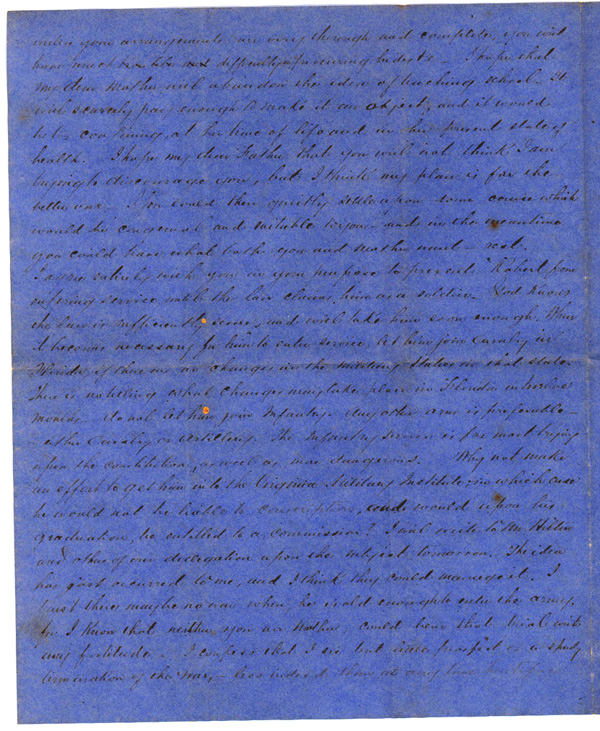 unless your arrangements are very thorough and complete, you will
have much difficulty in procuring hides etc. I hope that
my dear Mother will abandon the idea of teaching school. It
will scarcely pay enough to make it an object, and it would
be too trying, at her time of life and in her present state of
health. I hope my dear Father that you will not think I am
trying to discourage you, but I think my plan is far the
better one. You could then quietly settle upon some course which
would be congenial and suitable to you - and in the meantime
you could have what both you and Mother need - rest.
I agree entirely with you in your purpose to prevent Robert from
entering service until the law claims him as a soldier. God knows
the law is sufficiently severe, and will take him soon enough. When
it becomes necessary for him to enter service, let him join Cavalry in
Florida if there are no changes in the military status in that state.
There is no telling what changes may take place in Florida in twelve
months. Do not let him join Infantry. Any other arm is preferable -
either Cavalry or Artillery. The Infantry service is far more trying
upon the constitution, as well as more dangerous. Why not make
an effort to get him into the Virginia Military Institute - in which case
he would not be liable to conscription, and would upon his
graduation, be entitled to a commission? I will write to Mr Hilton
and others of our delegation upon the subject tomorrow. The idea
has just occurred to me, and I think they could manage it. I
trust there may be no war when he is old enough to enter the army,
for I know that neither you nor Mother, could bear that trial with
any fortitude. I confess that I see but little prospect of a speedy
termination of the war, - less indeed than at any time